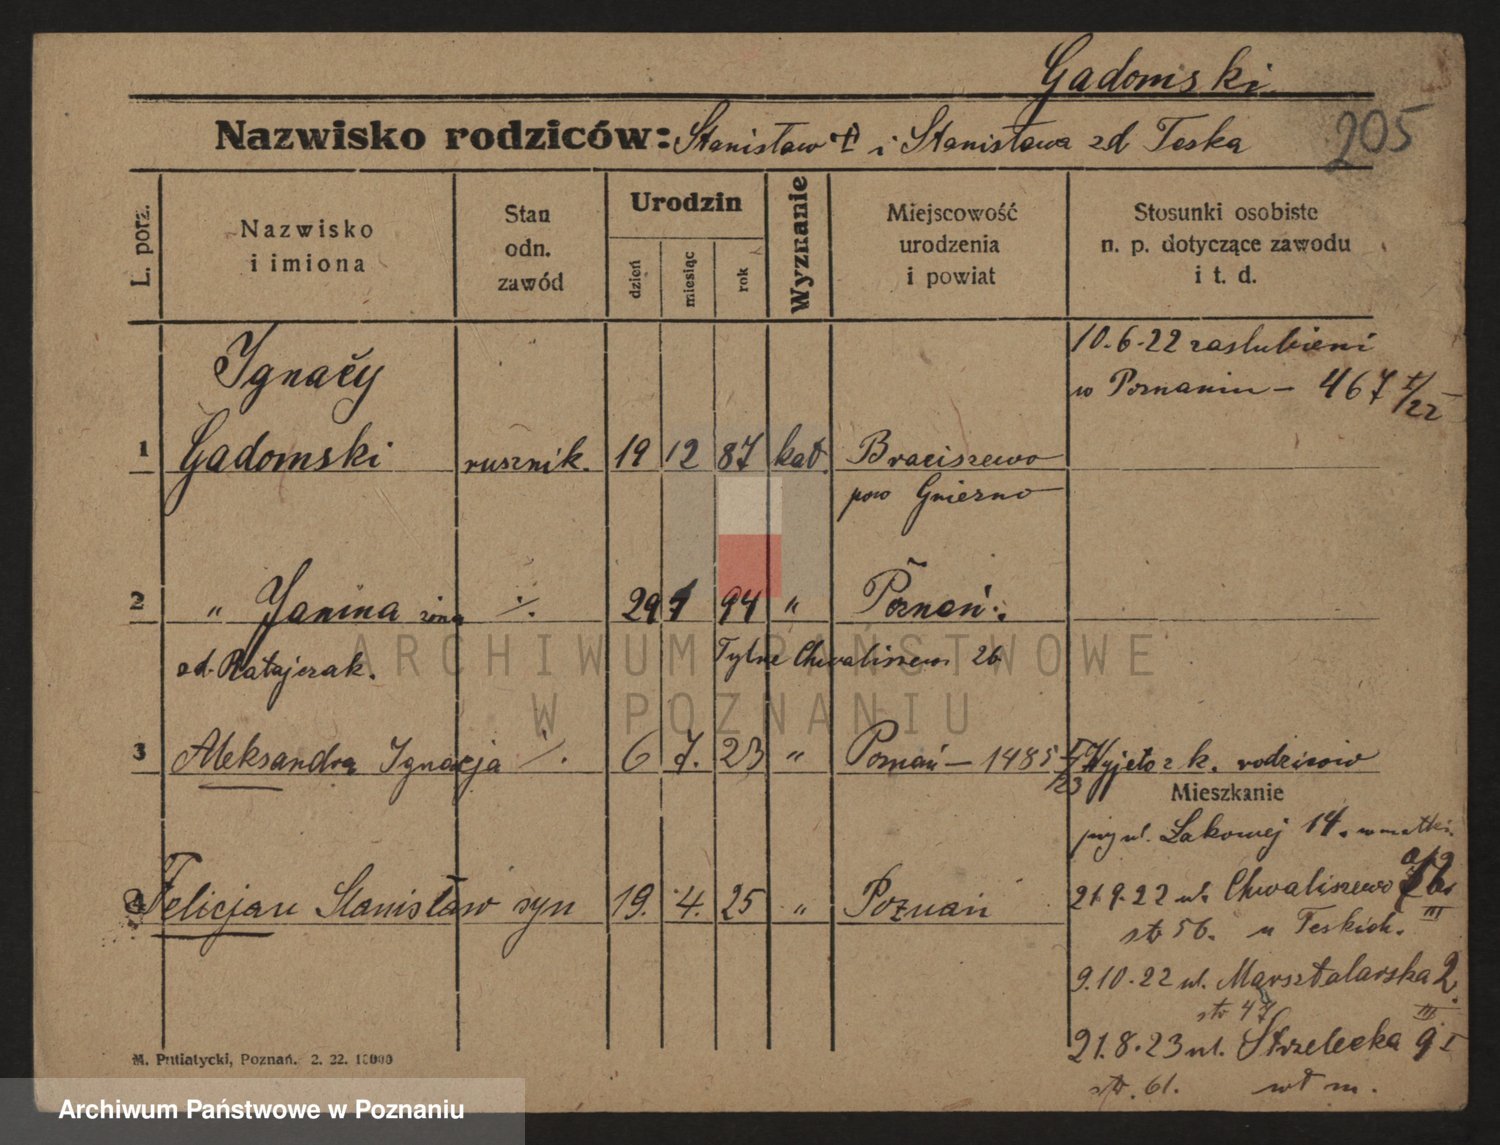 Gadomski
205
Nazwisko rodziców: Stanisław i Stanisława zd Teska
L. porz.
Nazwisko i imiona
Stan odn. zawód
Urodzin
dzień miesiąc rok
Wyznanie
Miejscowość urodzenia i powiat
Stosunki osobiste n. p. dotyczące zawodu i t. d.
10.6.22 zaslubieni
w Poznaniu - 467 I/22
Ignacy
1 Gadomski rusznik. 19 12 87 kat. Braciszewo
pow Gniezno
2 " Janina żona ·/. 29 94 " Poznań
zd. Ratajczak. Tylne Chwaliszewo 26
3 Aleksandra Ignacja ·/. 6 7. 23 " Poznań - 1485 I/23 Wyjęto z k. rodziców
Mieszkanie
przy ul. Łąkowej 14.
4 Felicjan Stanisław syn 19. 4. 25 " Poznań
21.9.22 ul. Chwaliszewo III
str 56. u Teskich.
9.10.22 ul. Marsztalarska 2. III
str 47
21.8.23 ul. Strzelecka 9 I
str. 61.
M. Putiatycki, Poznań. 2. 22. 10000
ARCHIWUM PAŃSTWOWE
W POZNANIU
Archiwum Państwowe w Poznaniu